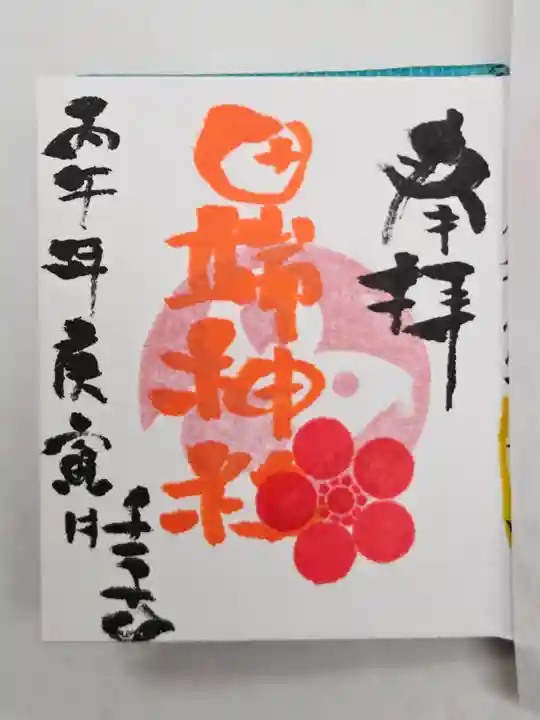 奉拝
田端神社
丙午年庚寅月
壬子日